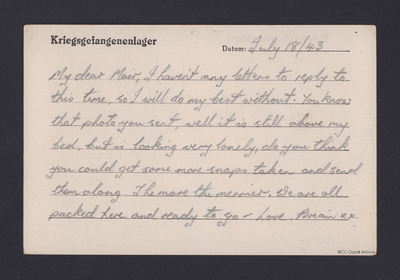 Kriegsgefangenenlager
Datum: July 18/43
My dear Moir, I haven't any letters to reply to
this time, so I will do my best without. You know
that photo you sent, well it is still above my
bed, but is looking very lonely, do you think
you could get some more snaps taken and send
them along. The more the merrier. We are all
packed here and ready to go - Love Brian xx.
IBCC Digital Archive